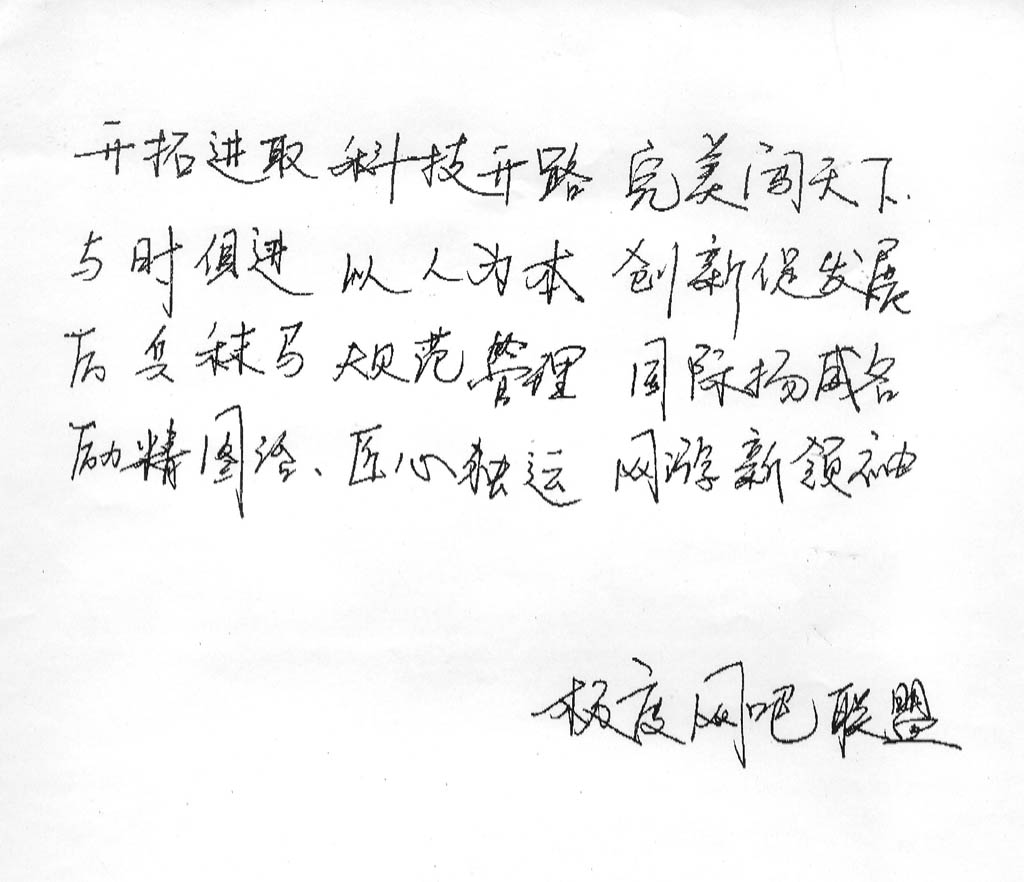 开拓进取 科技开路 完美闯天下
与时俱进 以人为本 创新促发展
厉兵秣马 规范管理 国际扬威名
励精图治、匠心独运 网游新领袖
极度网吧联盟